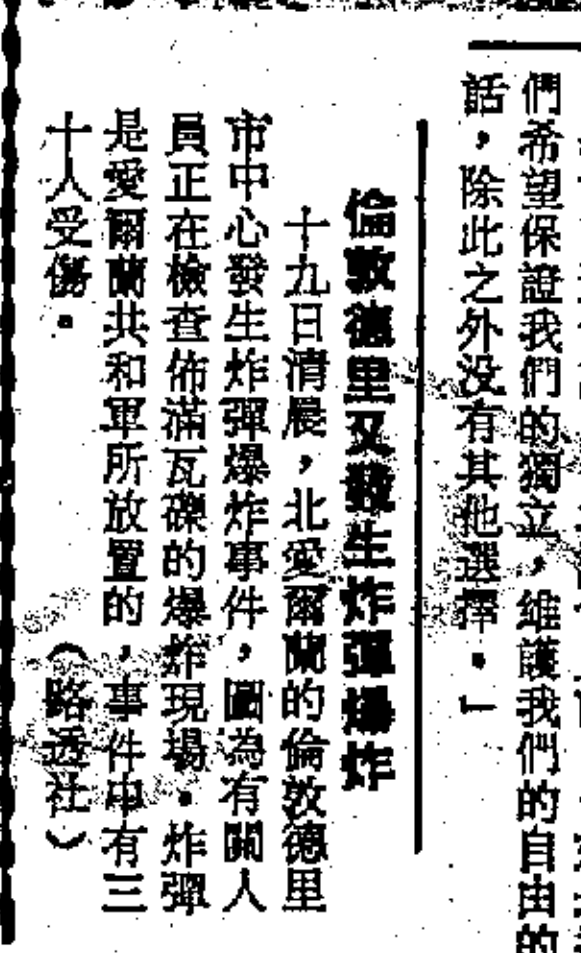 們希望保證我們的獨立，維護我們的自由的
話，除此之外没有其他選擇。」
倫敦德里又發生炸彈爆炸
十九日清晨，北愛爾蘭的倫敦德里
市中心發生炸彈爆炸事件，圖為有關人
員正在檢查佈滿瓦礫的爆炸現場。炸彈
是愛爾蘭共和軍所放置的，事件中有三
十人受傷。（路透社）